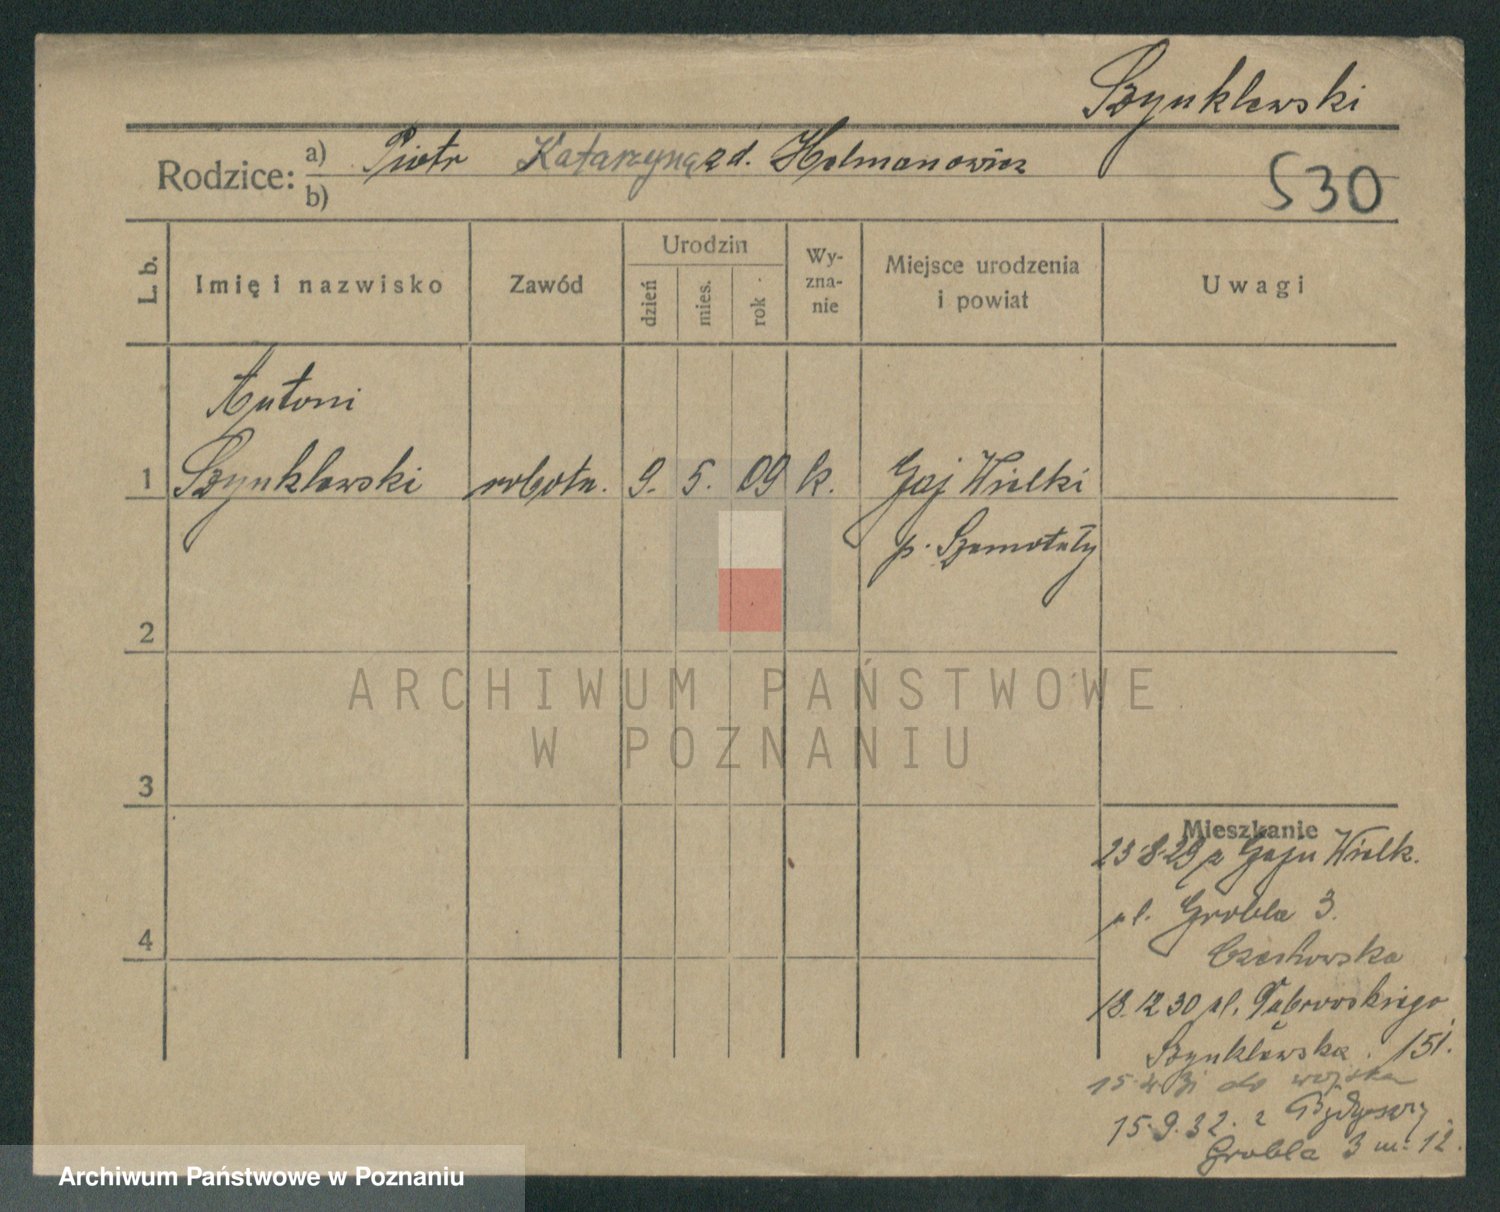 Szynklewski
Rodzice: a) Piotr Katarzyna z d. Holmanowicz
b)
530
L. b.
Imię i nazwisko
Zawód
Urodzin
dzień
mies.
rok
Wy-
zna-
nie
Miejsce urodzenia
i powiat
Uwagi
Antoni
1 Szynklewski robotn. 9. 5. 09 k. Gaj Wielki
p. Szamotuły
2
3
4
Mieszkanie
23.8.29 z Gaju Wielk.
ul. Grobla 3.
Czechowska
13.12.30 ul. Dąbrowskiego
Szynklewska. 151.
15 31 do wojska
15.9.32. z Bydgoszczy
Grobla 3 m. 12.
ARCHIWUM PAŃSTWOWE
W POZNANIU
Archiwum Państwowe w Poznaniu